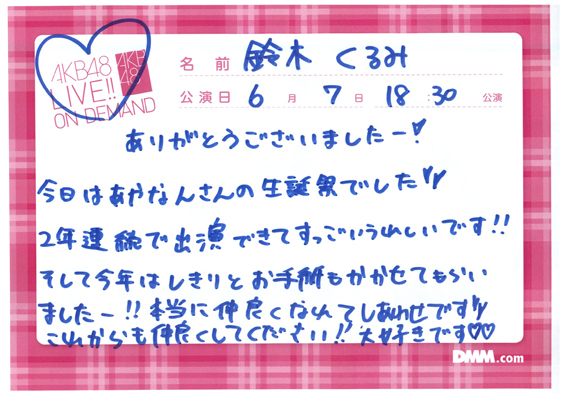 AKB48
LIVE!!
ON DEMAND
AKB
48
名前 鈴木 くるみ
公演日 6 月 7 日 18:30 公演
ありがとうございましたー!
今日はあやなんさんの生誕祭でした
2年連続で出演できてすっごいうれしいです!!
そして今年はしきりとお手紙もかかせてもらい
ましたー!!本当に仲良くなれてしあわせです
これからも仲良くしてください!!大好きです♡♡
DMM.com